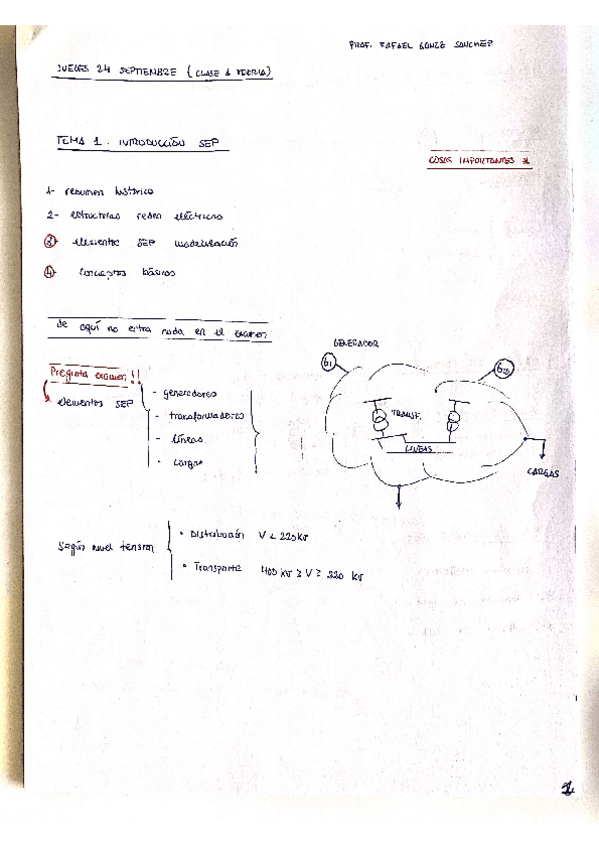 PROF. RAFAEL SANCHEZ
JUEVES 24 SEPTIEMBRE (CLASE 1 TEORIA)
TEMA 1. INTRODUCCIÓN SEP
COSAS IMPORTANTES *
1- resumen histórico
2- estructuras redes eléctricas
3- elementos SEP modelización
4- conceptos básicos
de aquí no entra nada en el examen
GENERADOR
G1
Pregunta examen!!
elementos SEP
- generadores
- transformadores
- líneas
- cargas
TRANSF.
LINEAS
CARGAS
Según nivel tension
• Distribución V < 220kV
• Transporte 400 kV ≥ V ≥ 220 kV
1